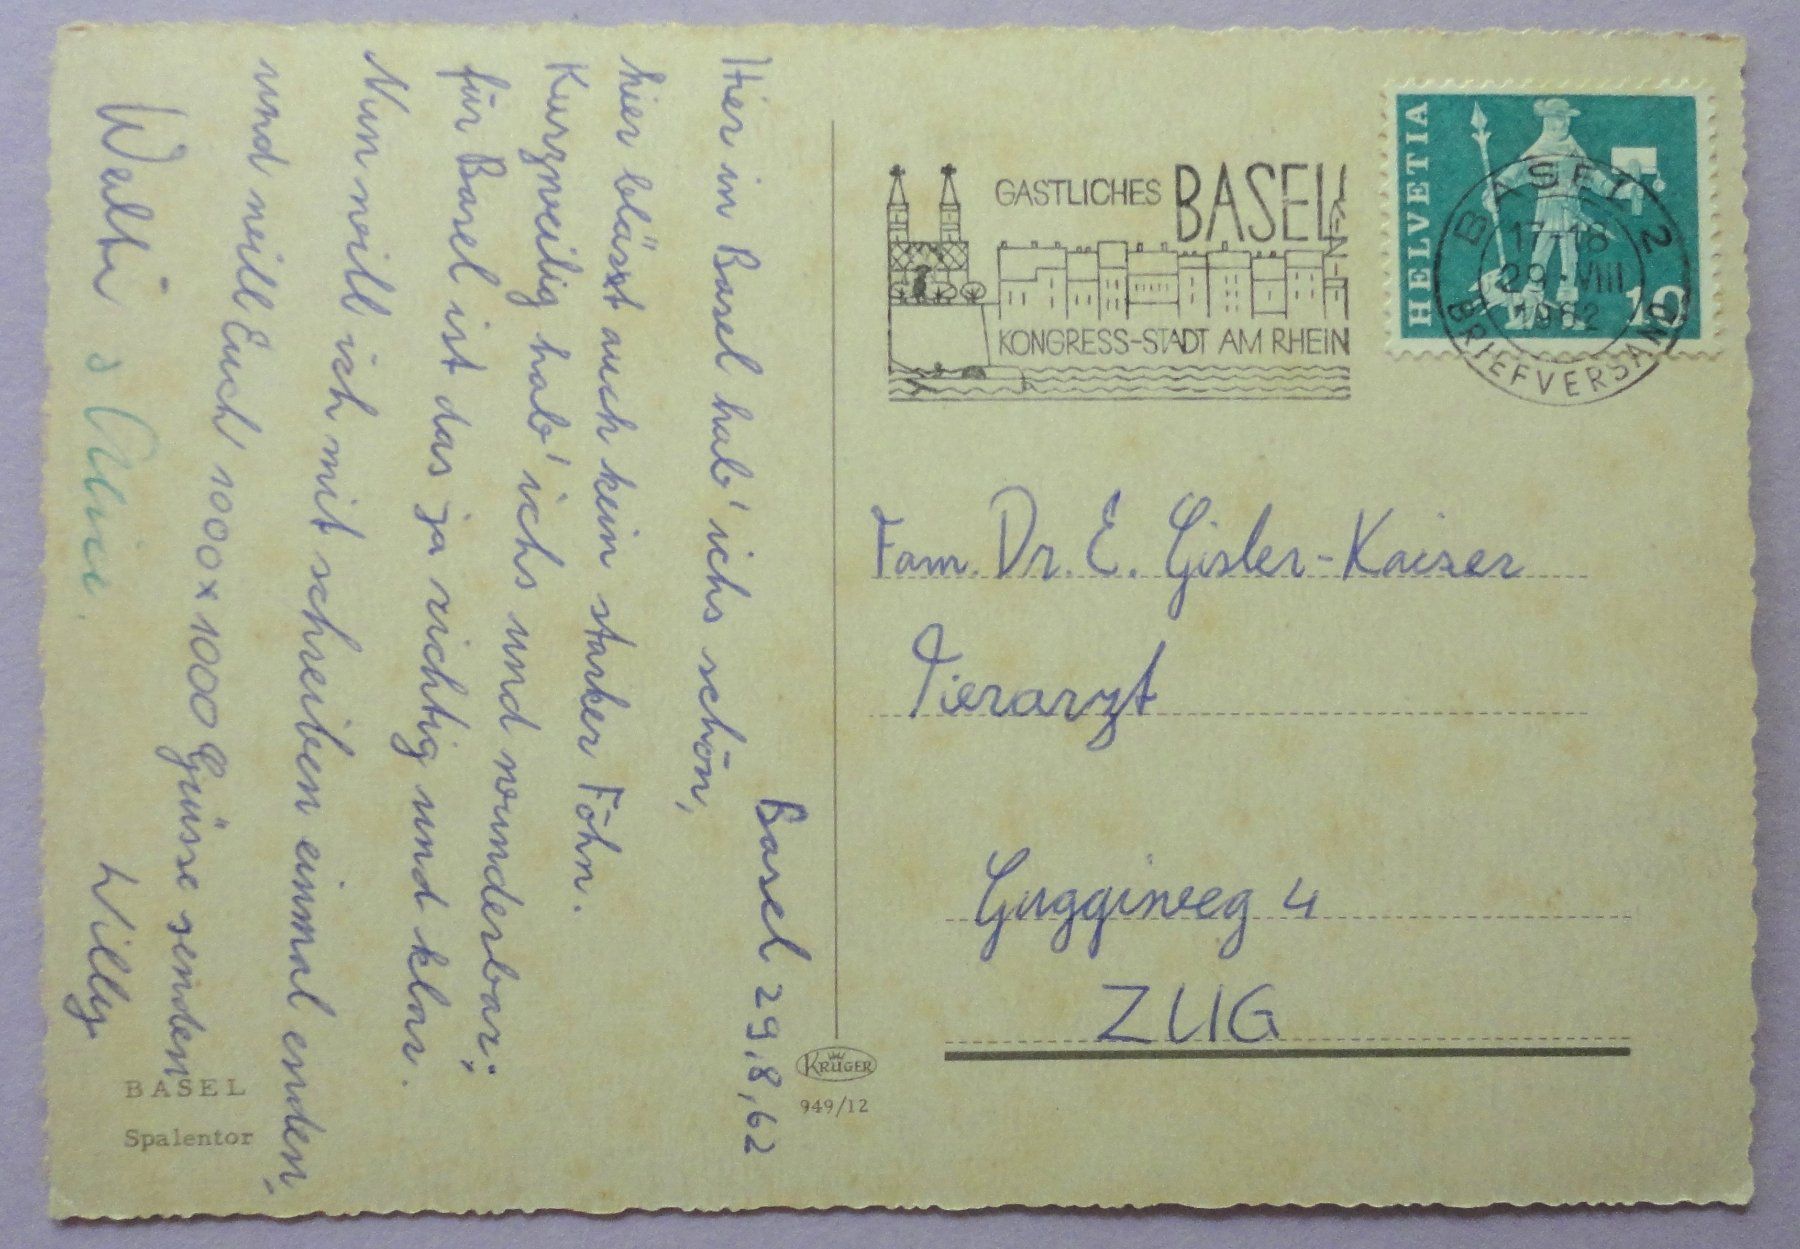 Basel 29,8,62
Hier in Basel hab' ichs schön,
hier bläst auch kein starker Föhn.
Kurzweilig hab' ichs und wunderbar;
für Basel ist das ja richtig und klar.
Nun will ich mit schreiben einmal enden,
und will Euch 1000 x 1000 Grüsse senden
Walti Willy
s Alice.
BASEL
Spalentor
KRÜGER
949/12
GASTLICHES BASEL
KONGRESS-STADT AM RHEIN
HELVETIA
10
BASEL 2
17-18
29.VIII
1962
BRIEFVERSAND
Fam. Dr. E. Gisler-Kaiser
Tierarzt
Guggiweg 4
ZUG